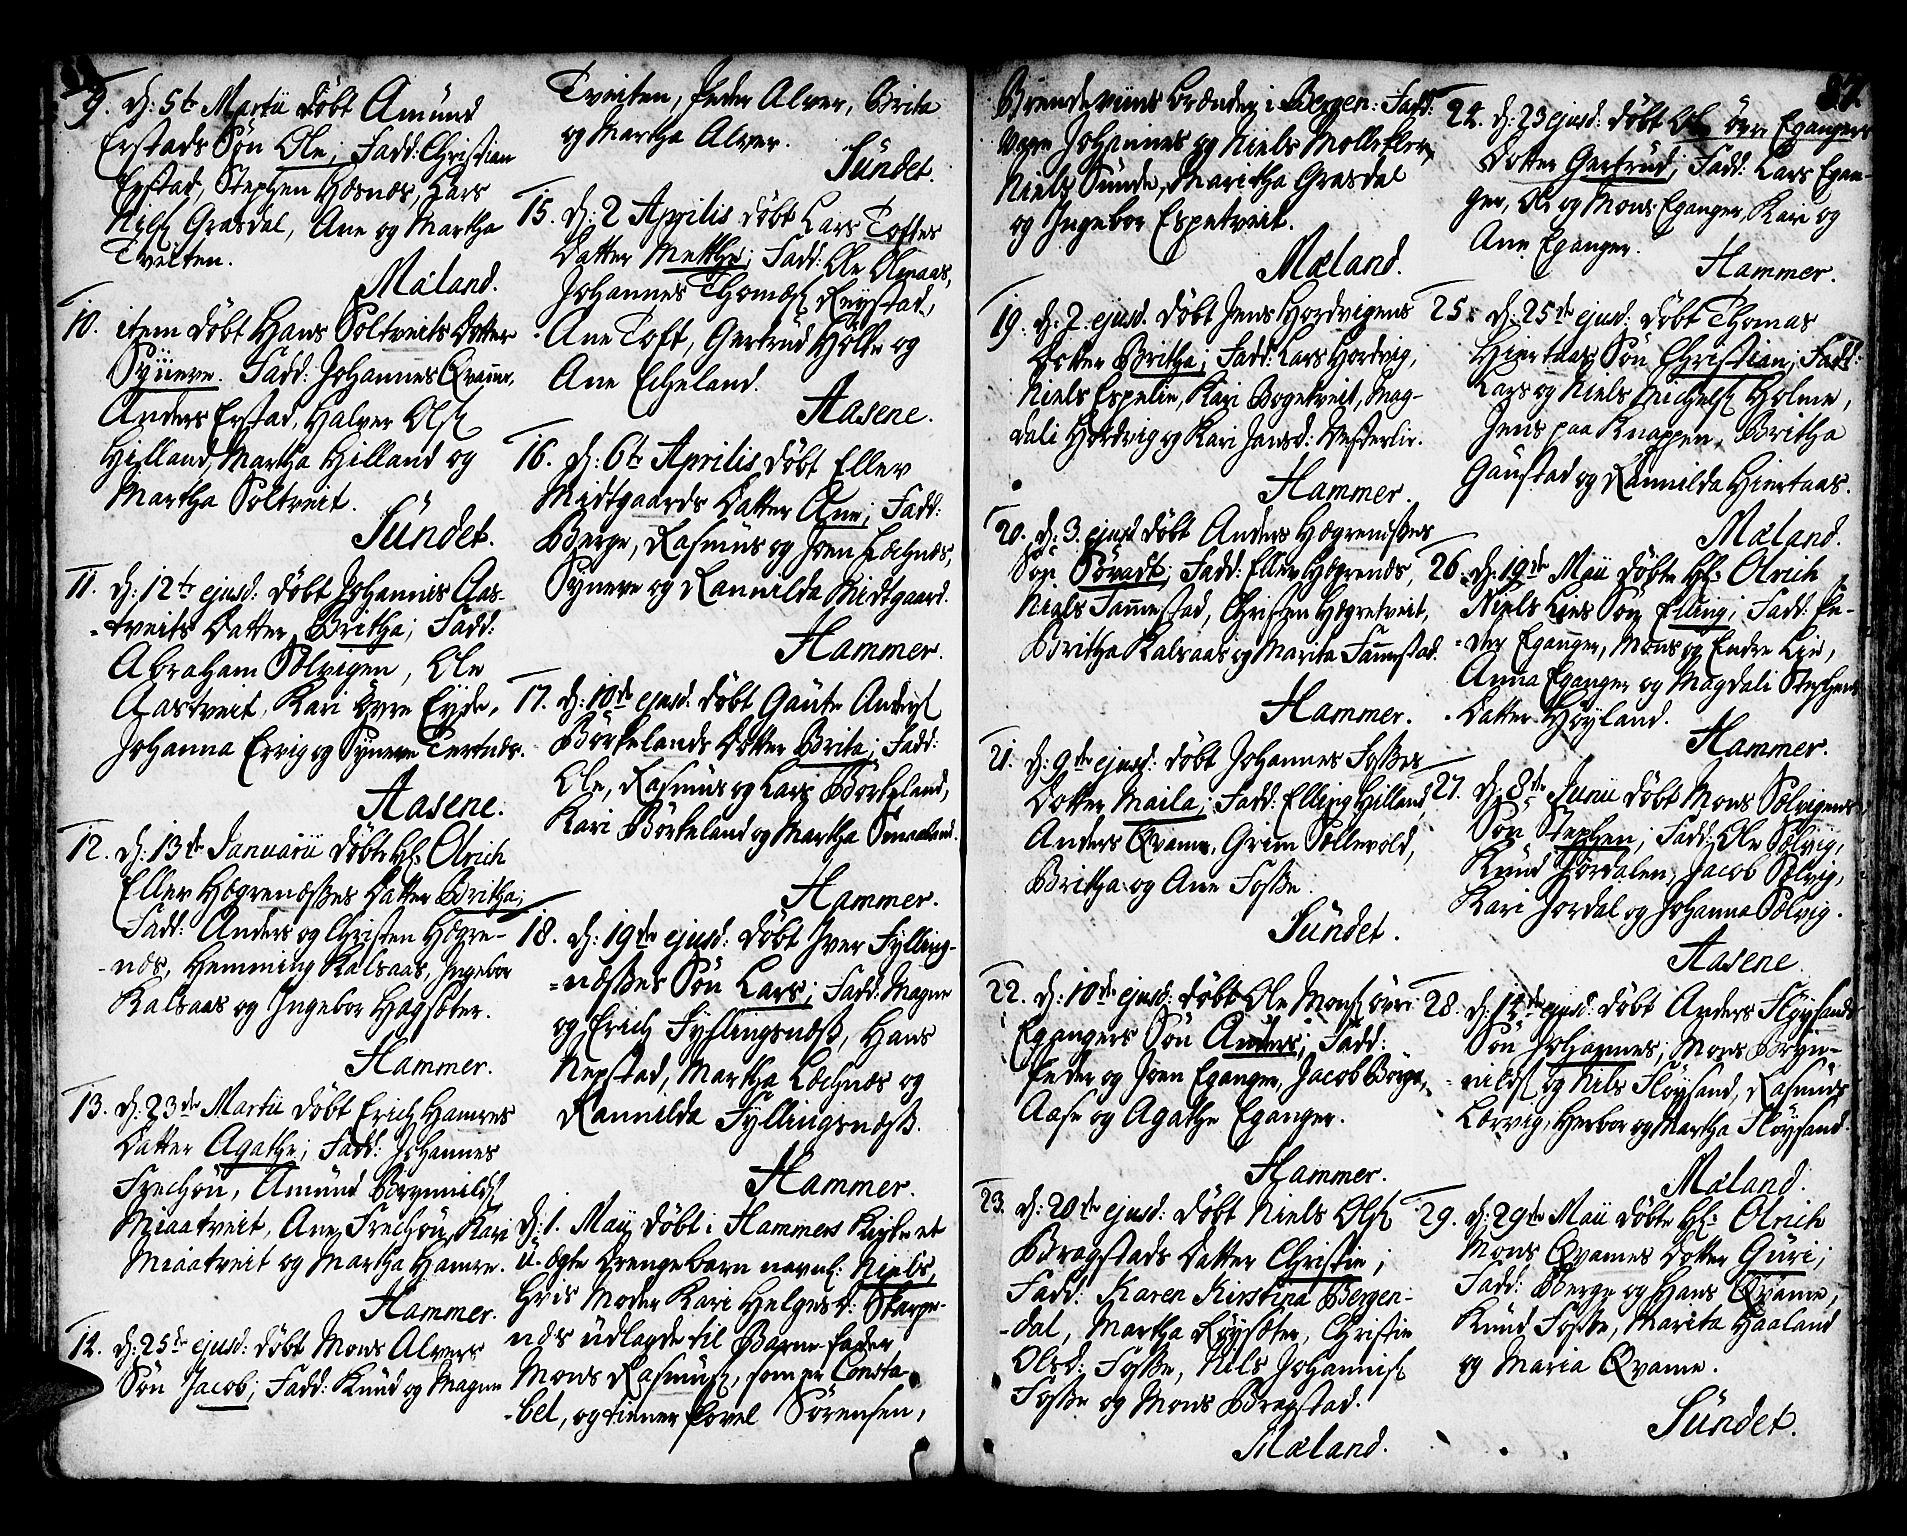 9. d: 5te Martii døbt Amund
Erstads Søn Ole; Fadd: Christian
Erstad, Stephen Hæsnæs, Lars
Nils Grasdal, Ane og Martha
Tveiten.
Mæland.
10. item døbt Hans Soltveits Dotter
Syneve. Fadd: Johannes Qvame,
Anders Erstad, Halver Ols
Hilland, Martha Hilland og
Martha Soltveit.
Sundet.
11. d: 12te ejusd: døbt Johannis Aas-
-tveits Datter Britha; Fadd:
Abraham Solvigen, Ole
Aastveit, Kari Øvre Eyde,
Johanna Ervig og Syneve Tertnæs.
Aasene.
12. d: 13de Januarii døbte Hr. Olrich
Ellev Hægrenæsses Datter Britha;
Fadd: Anders og Christen Hægre-
-næs, Hemming Kalsaas, Ingebor
Kalsaas og Ingebor Hagsæter.
Hammer.
13. d: 23de Martii døbt Erich Hamres
Datter Agathe; Fadd: Johannes
Frechøu, Amund Brynnilds
Miaatveit, Ane Frechøu, Kari
Miaatveit og Martha Hamre.
Hammer.
14. d: 25de ejusd: døbt Mons Alvers
Søn Jacob; Fadd: Knud og Magne
Tveiten, Peder Alver, Brita
og Martha Alver.
Sundet.
15. d: 2 Aprilis døbt Lars Toftes
Datter Metthe; Fadd: Ole Olmaas,
Johannes Thomæs Røystad,
Ane Toft, Gertrud Holte og
Ane Echeland.
Aasene.
16. d: 6te Aprilis døbt Ellev
Midtgaards Datter Ane; Fadd:
Berge, Rasmus og Joen Lochnæs,
Syneve og Rannilda Midtgaard.
Hammer.
17. d: 10de ejusd: døbt Gaute Anders
Børkelands Dotter Brita; Fadd:
Ole, Rasmus og Lars Børkeland,
Kari Børkeland og Martha Smaaland.
Hammer.
18. d: 19de ejusd: døbt Iver Fylling-
-næsses Søn Lars; Fadd: Magne
og Erich Fyllingsnæss, Hans
Nepstad, Martha Lochnæs og
Rannilda Fyllingsnæss.
Hammer.
d: 1. Maij døbt i Hammers Kirke et
u-ægte Drengebarn navnl: Niels,
hvis Moder Kari Helgesd: Skarpe-
næs udlagde til Barne fader
Mons Rasmus, som er Consta-
-bel, og tiener Povel Sørensen,
Brendeviins brænder i Bergen: Fadd:
vare Johannes og Niels Mollekler,
Niels Sunde, Maritha Grasdal
og Ingebor Espetveit.
Mæland.
19. d: 2. ejusd. døbt Jens Hordvigens
Dotter Britha; Fadd: Lars Hordvig,
Niels Espelie, Kari Bogetveit, Mag-
dali Hordvig og Kari Jensd: Vesterlie.
Hammer.
20. d: 3. ejusd døbt Anders Hægrenæsses
Søn Sivadt; Fadd: Ellev Hægrenæs,
Niels Tannestad, Christen Hægretveit,
Britha Kalsaas og Marita Tannestad.
Hammer.
21. d: 9de ejusd: døbt Johannes Fosses
Dotter Maila; Fadd: Elling Hilland,
Anders Qvamen, Grim Sollevold,
Britha og Ane Fosse.
Sundet.
22. d: 10de ejusd: døbt Ole Mons øvri
Egangers Søn Anders; Fadd:
Peder og Joen Eganger, Jacob Børge,
Aase og Agathe Eganger.
Hammer.
23. d: 20de ejusd: døbt Niels Ols
Bragstads Datter Christie;
Fadd: Karen Kirstina Bergen-
-dal, Martha Røysæter, Christie
Olsd: Fosse, Nils Johannis
Fosse og Mons Bragstad.
Mæland.
87.
24. d: 23 ejusd: døbt Ole øvri Egangers
Dotter Gertrud; Fadd: Lars Egan-
ger, Ole og Mons Eganger, Kari og
Ane Eganger.
Hammer.
25. d: 25de ejusd: døbt Thomas
Hiertaas Søn Christian; Fadd:
Lars og Niels Michels Holme,
Jens paa Knappen, Britha
Gaustad og Rannilda Hiertaas.
Mæland.
26. d: 19de Maii døbte Hr. Olrich
Niels Lies Søn Elling; Fadd: Pe-
-der Eganger, Mons og Endre Lie,
Anna Eganger og Magdali Stephens
Datter Høyland.
Hammer.
27. d: 8de Junii døbt Mons Solvigens
Søn Stephen; Fadd: Ole Solvig,
Knud Jordalen, Jacob Solvig,
Kari Jordal og Johanna Solvig.
Aasene.
28. d: 14de ejusd: døbt Anders Fløysands
Søn Johannes; Mons Bryn-
-nilds og Nils Fløysand, Rasmus
Lervig, Herbor og Martha Fløysand.
Mæland.
29. d: 29de Maii døbte Hr. Olrich
Mons Qvames Dotter Guri;
Fadd: Berge og Hans Qvame,
Knud Fosse, Marita Haaland
og Maria Qvame.
Sundet.